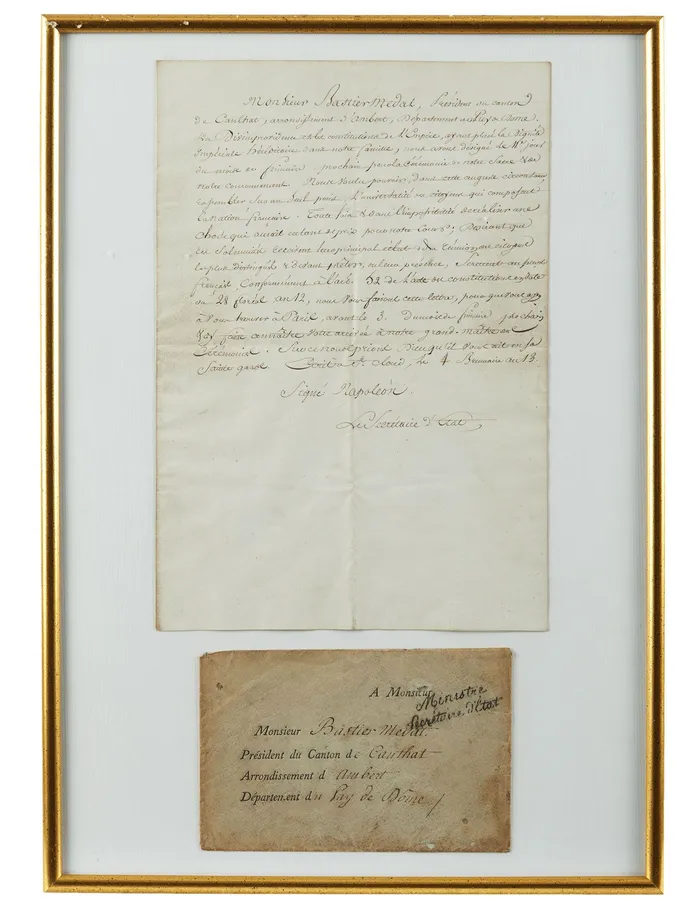 Monsieur Bastier Medal, Président du canton
de Caulhat, arrondissement d'Ambert, Département du Puy de Dome.
La Divine providence et les constitutions de l'Empire, ayant placé la dignité
Impériale héréditaire dans notre famille, nous avons désigné le 11e jour
du mois de frimaire prochain pour la Cérémonie de notre Sacre & de
notre couronnement. Nous
sur un seul point, l'universalité des citoyens qui composent
la Nation française. Toute fois & dans l'impossibilité de réaliser une
chose qui auroit eu tant de prix pour notre Coeur, Désirant que
ces Solennités reçoivent leur principal éclat de la réunion des citoyens
les plus distingués, & devant prêter en leur présence, Serment au peuple
français, Conformément à l'art. 52 de l'acte des constitutions en date
du 28 floréal an 12, nous vous faisons cette lettre, pour que vous ayez
à vous trouver à Paris, avant le 3. du mois de frimaire prochain
& d'y faire connaître votre arrivée à notre grand-maître des
Cérémonies. Sur ce nous prions Dieu qu'il vous ait en sa
Sainte garde. Écrit à St Cloud, le 4 Brumaire an 13.
Signé Napoléon.
Le Secrétaire d'Etat
A Monsieur
Ministre
Secrétaire d'Etat
Monsieur Bastier Medal.
Président du Canton de Caulhat
Arrondissement d Ambert
Département du Puy de Dôme